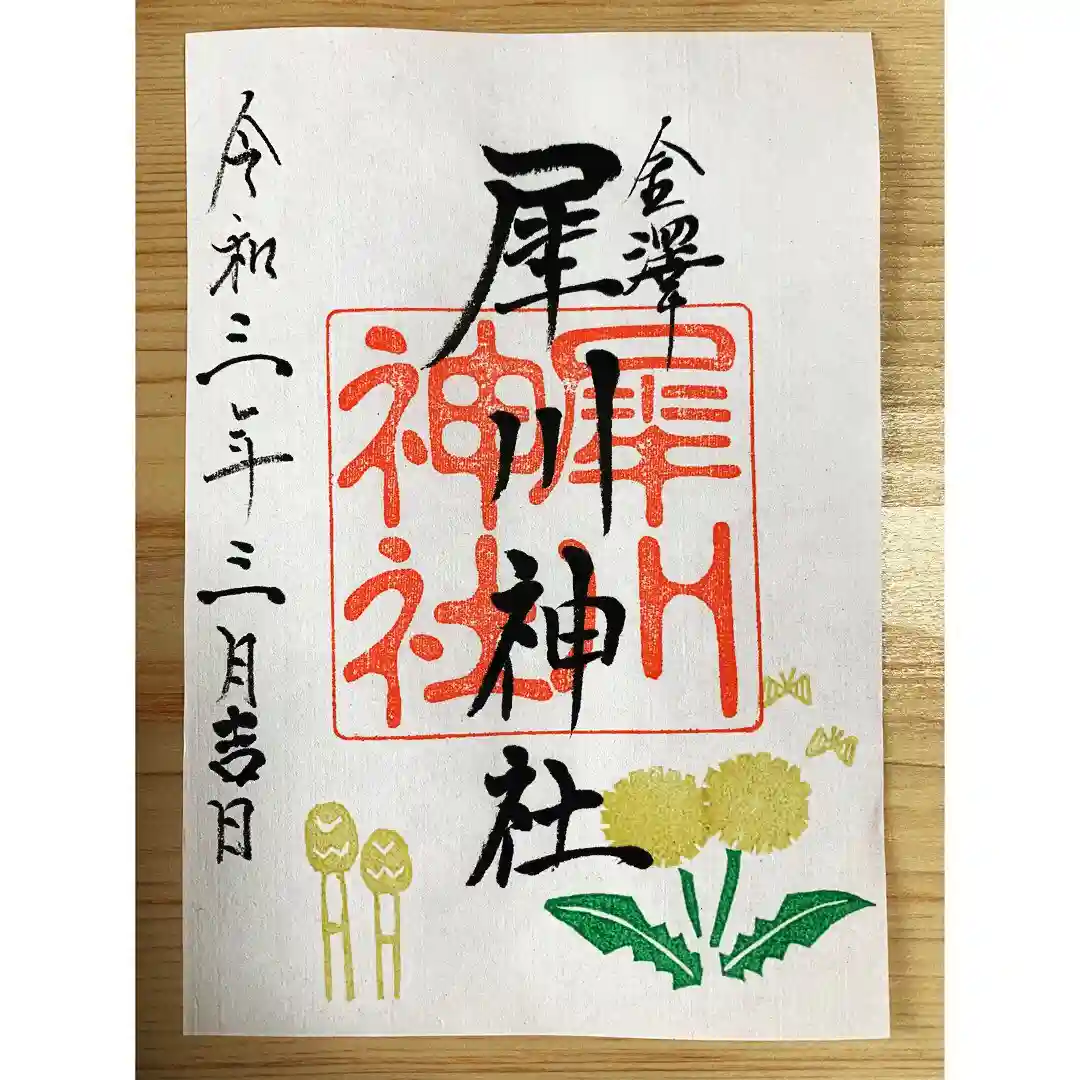 金澤
犀川神社
犀川
神社
令和三年三月吉日